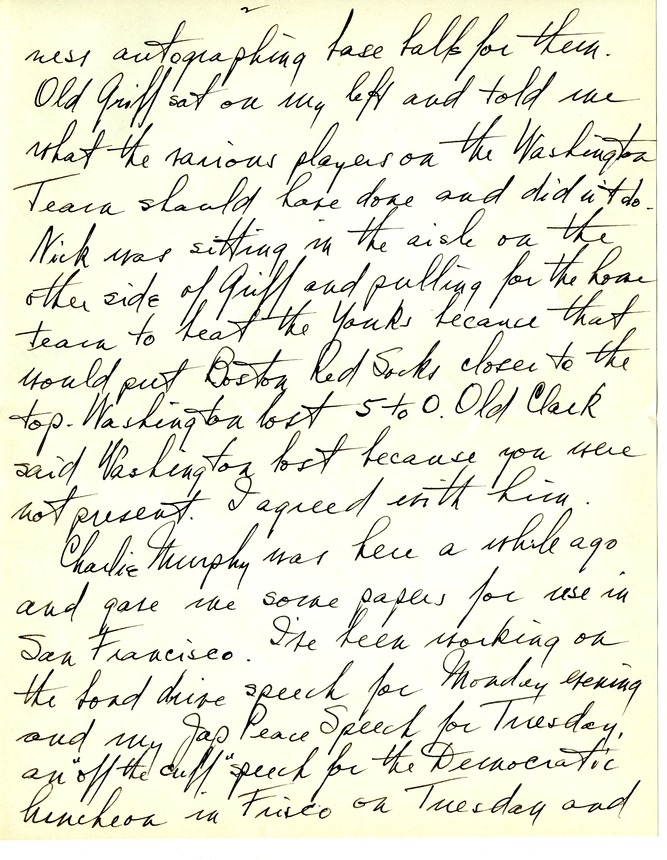 2
ness autographing base balls for them.
Old Griff sat on my left and told me
what the various players on the Washington
Team should have done and didn't do.
Nick was sitting in the aisle on the
other side of Griff and pulling for the home
team to beat the Yanks because that
would put Boston Red Socks closer to the
top. Washington lost 5 to 0. Old Clark
said Washington lost because you were
not present. I agreed with him.
Charlie Murphy was here a while ago
and gave me some papers for use in
San Francisco. I've been working on
the bond drive speech for Monday evening
and my Jap Peace Speech for Tuesday,
an "off the cuff" speech for the Democratic
luncheon in Frisco on Tuesday and